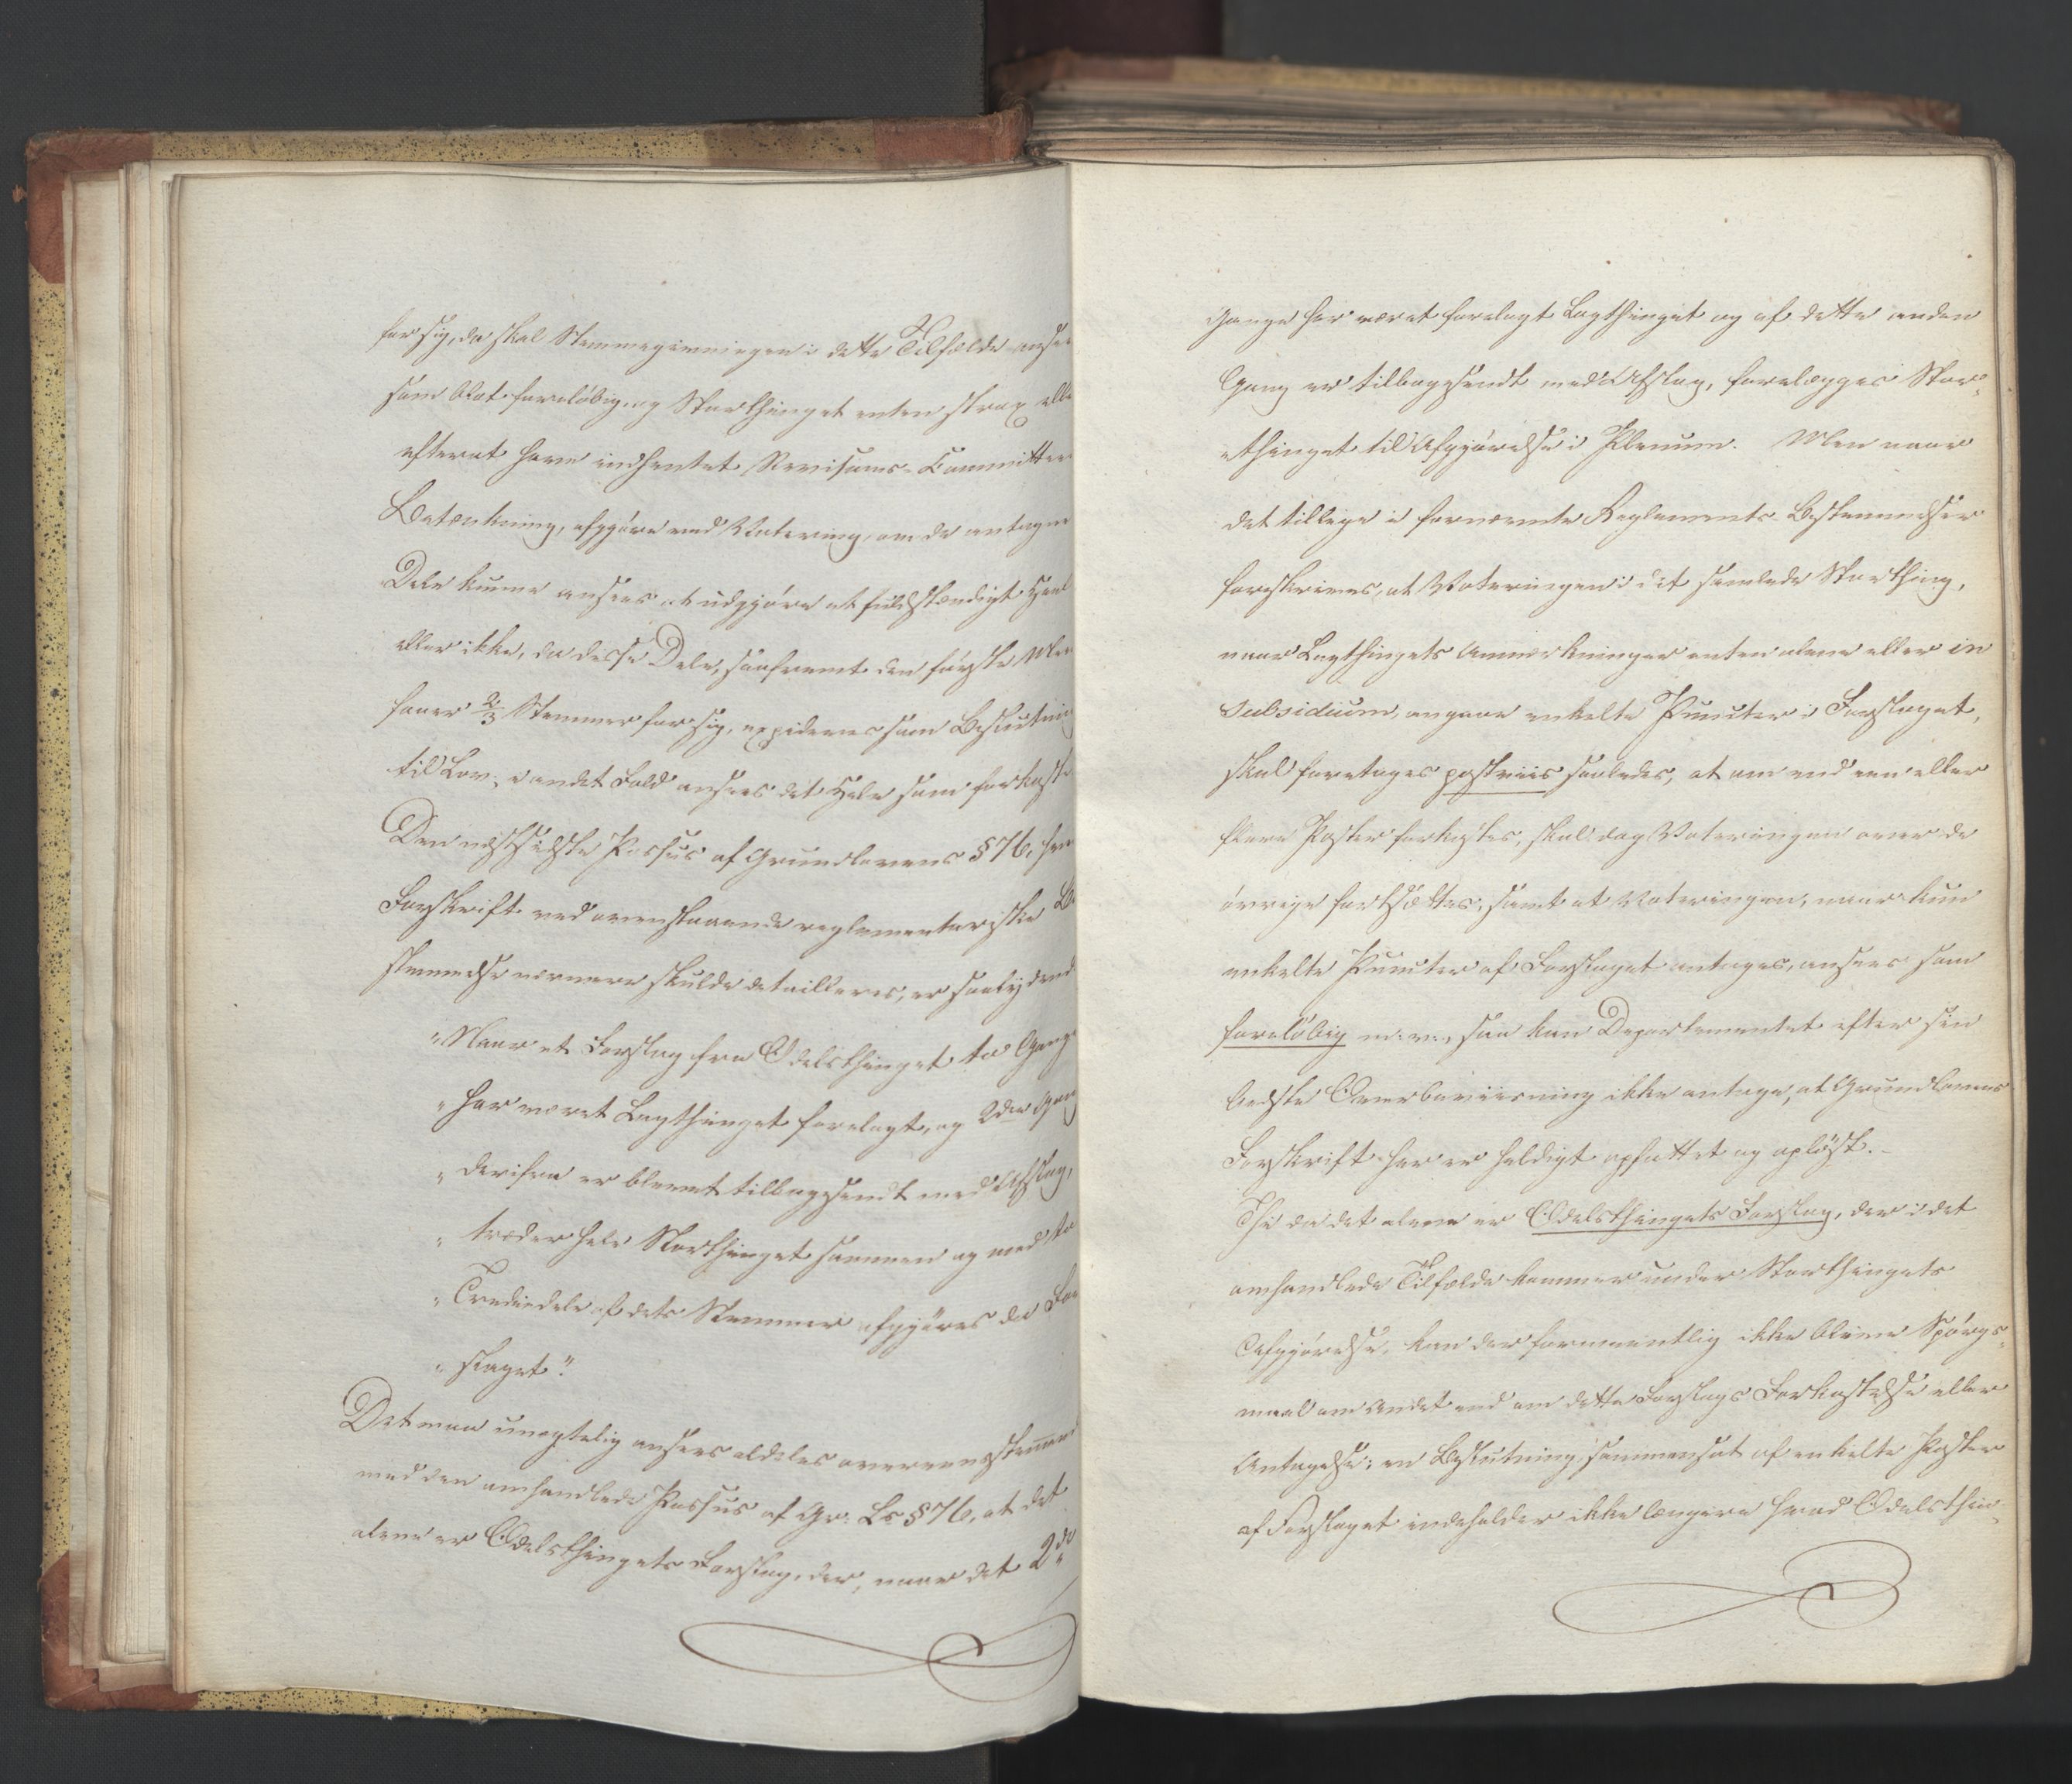 for sig, da skal Stemmegivningen i dette Tilfælde ansees
som blot foreløbig, og Storthinget enten strax elle
efterat have indhentet Revisions-Committee
Betænkning, afgjøre ved Votering, om de antagne
Dele kunne ansees at udgjøre et fuldstændigt Heel
eller ikke, da disse Dele, saafremt den første Men
faaer 2/3 Stemmer for sig, expideres som Beslutning
til Lov; i andet Fald ansees det Hele som forkaste
Den næstsidste Passus af Grundlovens § 76, hvis
Forskrift ved ovenstaaende reglementariske Be
stemmelse nærmere skulde detailleres, er saalydende
"Naar et Forslag fra Odelsthinget to Gange
"har været Lagthinget forelagt, og 2den Gang
"derifra er blevet tilbagesendt med Afslag,
"træder hele Storthinget sammen og med to
"Trediedele af dets Stemmer afgjøres da For
"slaget".
Det maa unegtelig ansees aldeles overeensstemmende
med den omhandlede Passus af Gr: Ls § 76, at det
alene er Odelsthingets Forslag, der, naar det 2de
Gange har været forelagt Lagthinget og af dette anden
Gang er tilbagesendt med Afslag, forelægges Stor-
thinget til Afgjørelse i Plenum. Men naar
det tillige i fornævnte Reglements-Bestemmelser
foreskrives, at Voteringen i det samlede Storthing,
naar Lagthingets Anmærkninger enten alene eller in
subsidium, angaae enkelte Puncter i Forslaget,
skal foretages postviis saaledes, at om end een eller
flere Poster forkastes, skal dog Voteringen over de
øvrige fortsættes, samt at Voteringen, naar kun
enkelte Puncter af Forslaget antages, ansees som
foreløbig m: v:, saa kan Departementet efter sin
bedste Overbeviisning ikke antage, at Grundlovens
Forskrift her er heldigt opfattet og opløst.-
Thi da det alene er Odelsthingets Forslag, der i det
omhandlede Tilfælde kommer under Storthingets
Afgjørelse, kan der formeentlig ikke blive Spørgs-
maal om Andet end om dette Forslags Forkastelse eller
Antagelse; en Beslutning sammensat af enkelte Poster
af Forslaget indeholder ikke længere hvad Odelsthin-